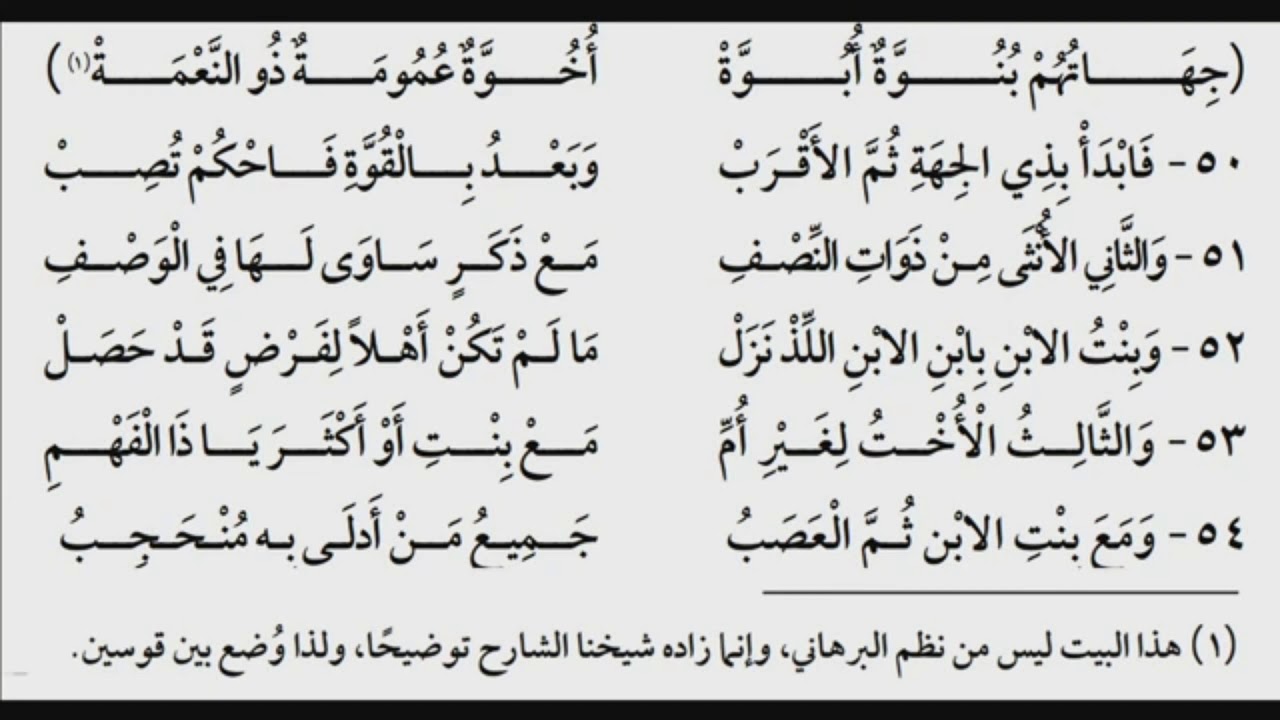 (جِهَاتُهُمْ بُنُوَّةٌ أُبُوَّةْ أُخُوَّةٌ عُمُومَةٌ ذُو النَّعْمَةْ(١))
٥٠- فَابْدَأْ بِذِي الجِهَةِ ثُمَّ الأَقْرَبْ وَبَعْدُ بِالْقُوَّةِ فَاحْكُمْ تُصِبْ
٥١- وَالثَّانِي الأُنْثَى مِنْ ذَوَاتِ النِّصْفِ مَعْ ذَكَرٍ سَاوَى لَهَا فِي الْوَصْفِ
٥٢- وَبِنْتُ الابْنِ بِابْنِ الابْنِ اللَّذْ نَزَلْ مَا لَمْ تَكُنْ أَهْلاً لِفَرْضٍ قَدْ حَصَلْ
٥٣- وَالثَّالِثُ الْأُخْتُ لِغَيْرِ أُمِّ مَعْ بِنْتٍ أَوْ أَكْثَرَ يَا ذَا الْفَهْمِ
٥٤- وَمَعَ بِنْتِ الابْن ثُمَّ الْعَصَبُ جَمِيعُ مَنْ أَدلَى به مُنْحَجِبُ
(١) هذا البيت ليس من نظم البرهاني، وإنما زاده شيخنا الشارح توضيحًا، ولذا وُضع بين قوسين.